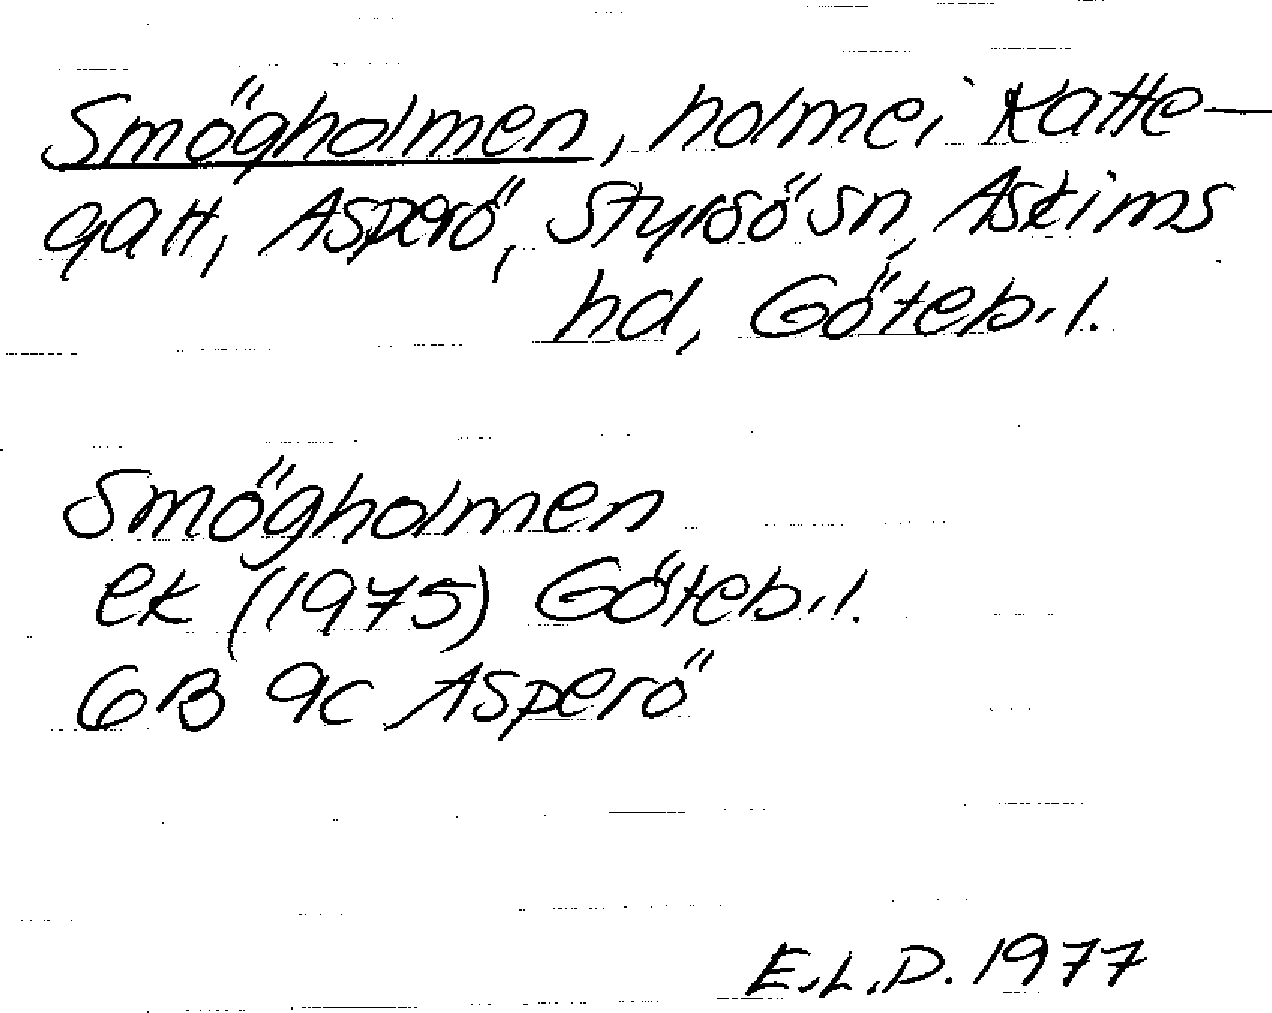 Smögholmen, holme i Katte-
gatt, Asperö, Styrsö sn, Askims
hd, Göteb. l.
Smögholmen
ek (1975) Göteb. l.
6B 9c Asperö
E.L.D. 1977